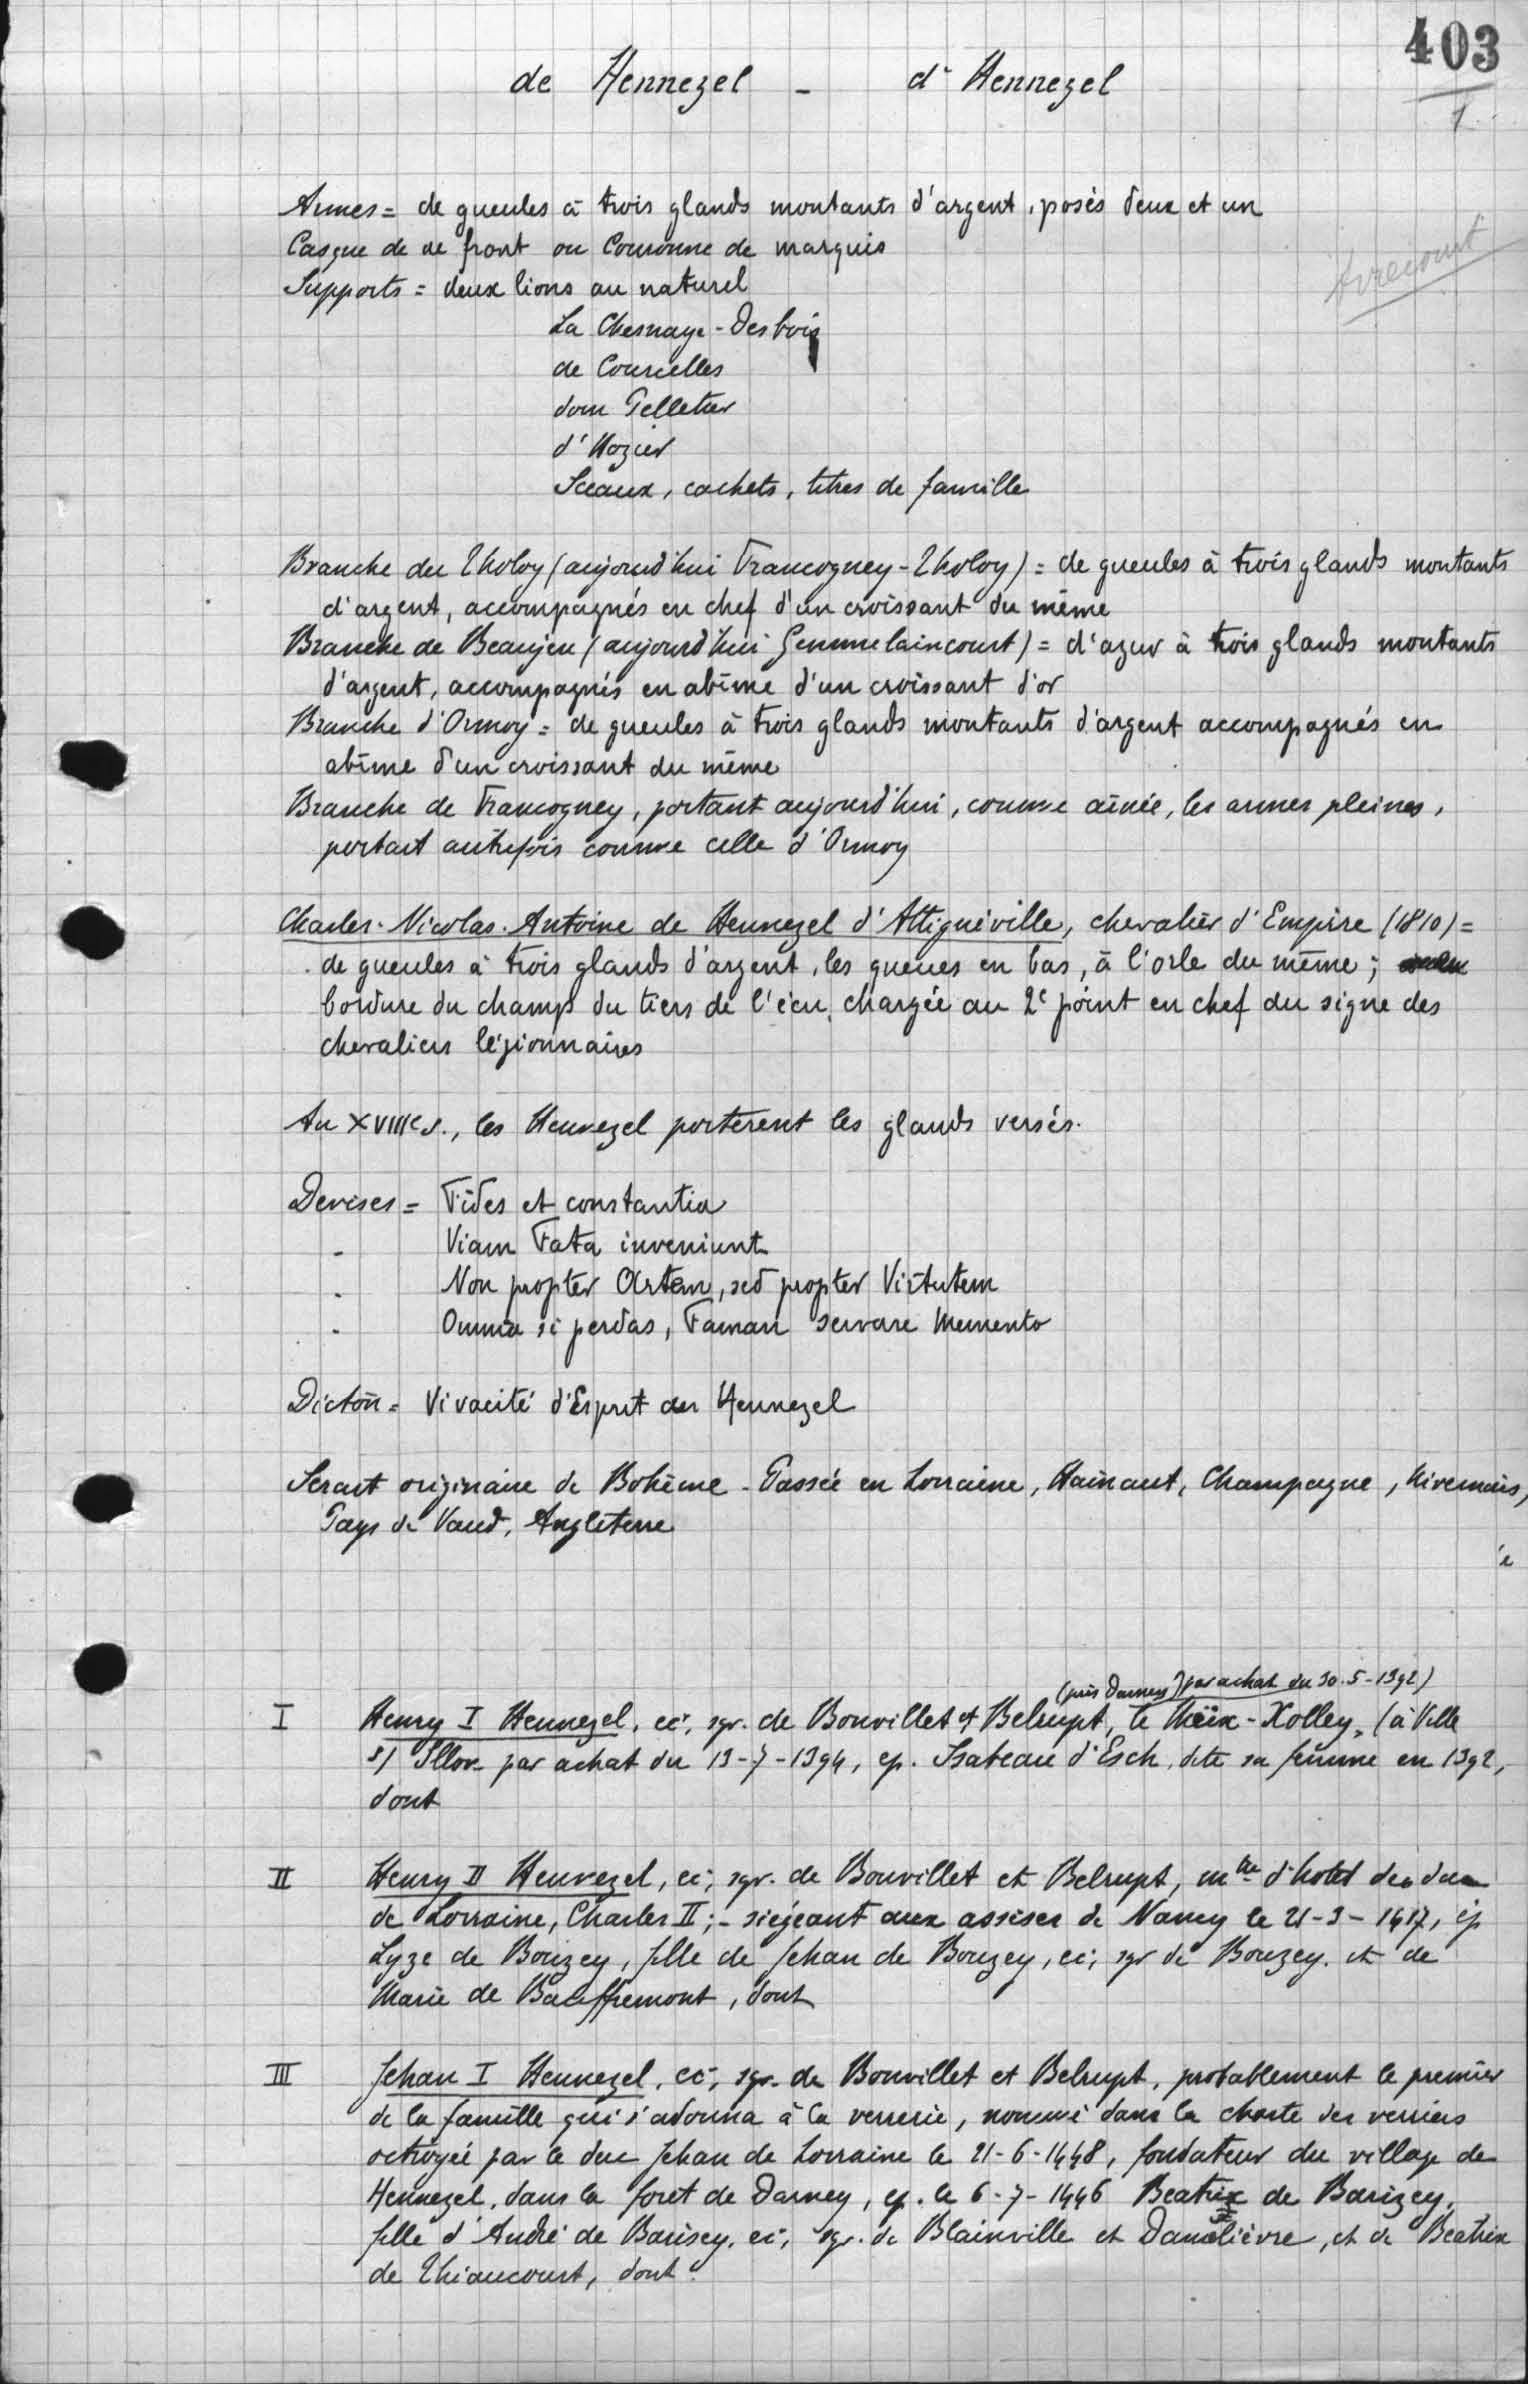 403
1
de Hennezel - d'Hennezel
Armes = de gueules à trois glands montants d'argent, posés deux et un
Casque de de front ou Couronne de marquis
Avrecourt
Supports = deux lions au naturel
La Chesnaye-Desbois
de Courcelles
dom Pelletier
d'Hozier
Sceaux, cachets, titres de famille
Branche du Tholoy (aujourd'hui Francogney-Tholoy) = de gueules à trois glands montants
d'argent, accompagnés en chef d'un croissant du même
Branche de Beaujeu (aujourd'hui Gemmelaincourt) = d'azur à trois glands montants
d'argent, accompagnés en abîme d'un croissant d'or
Branche d'Ormoy = de gueules à trois glands montants d'argent accompagnés en
abîme d'un croissant du même
Branche de Francogney, portant aujourd'hui, comme aînée, les armes pleines,
portait autrefois comme celle d'Ormoy
Charles-Nicolas-Antoine de Hennezel d'Attignéville, chevalier d'Empire (1810) =
de gueules à trois glands d'argent, les queues en bas, à l'orle du même;
bordure du champ du tiers de l'écu, chargée au 2e point en chef du signe des
chevaliers légionnaires
Au XVIIIe s., les Hennezel portèrent les glands versés.
Devises = Fides et constantia
- Viam Fata inveniunt
- Non propter Artem, sed propter Virtutem
- Omnia si perdas, Famam servare Memento
Dicton = Vivacité d'Esprit des Hennezel
Serait originaire de Bohême - Passée en Lorraine, Hainaut, Champagne, Nivernais,
Pays de Vaud, Angleterre
(près Darney) par achat du 30-5-1392)
I Henry I Hennezel, ec., sgr. de Bonvillet et Belrupt, le Theïx-Xolley, (à Ville
s/ Illon par achat du 13-7-1394, ep. Isabeau d'Esch, dite sa femme en 1392,
dont
II Henry II Hennezel, ec., sgr. de Bonvillet et Belrupt, mtre d'hotel des ducs
de Lorraine, Charles II; - siégeant aux assises de Nancy le 21-3-1417, ep
Lyze de Bouzey, fille de Jehan de Bouzey, ec., sgr de Bouzey. et de
Marie de Bauffremont, dont
III Jehan I Hennezel, ec., sgr. de Bonvillet et Belrupt, probablement le premier
de la famille qui s'adonna à la verrerie, nommé dans la charte des verriers
octroyée par le duc Jehan de Lorraine le 21-6-1448, fondateur du village de
Hennezel, dans la foret de Darney, ep. le 6-7-1446 Beatrix de Barizey,
fille d'André de Barisey, ec., sgr. de Blainville et Damelièvre, et de Beatrix
de Thiaucourt, dont